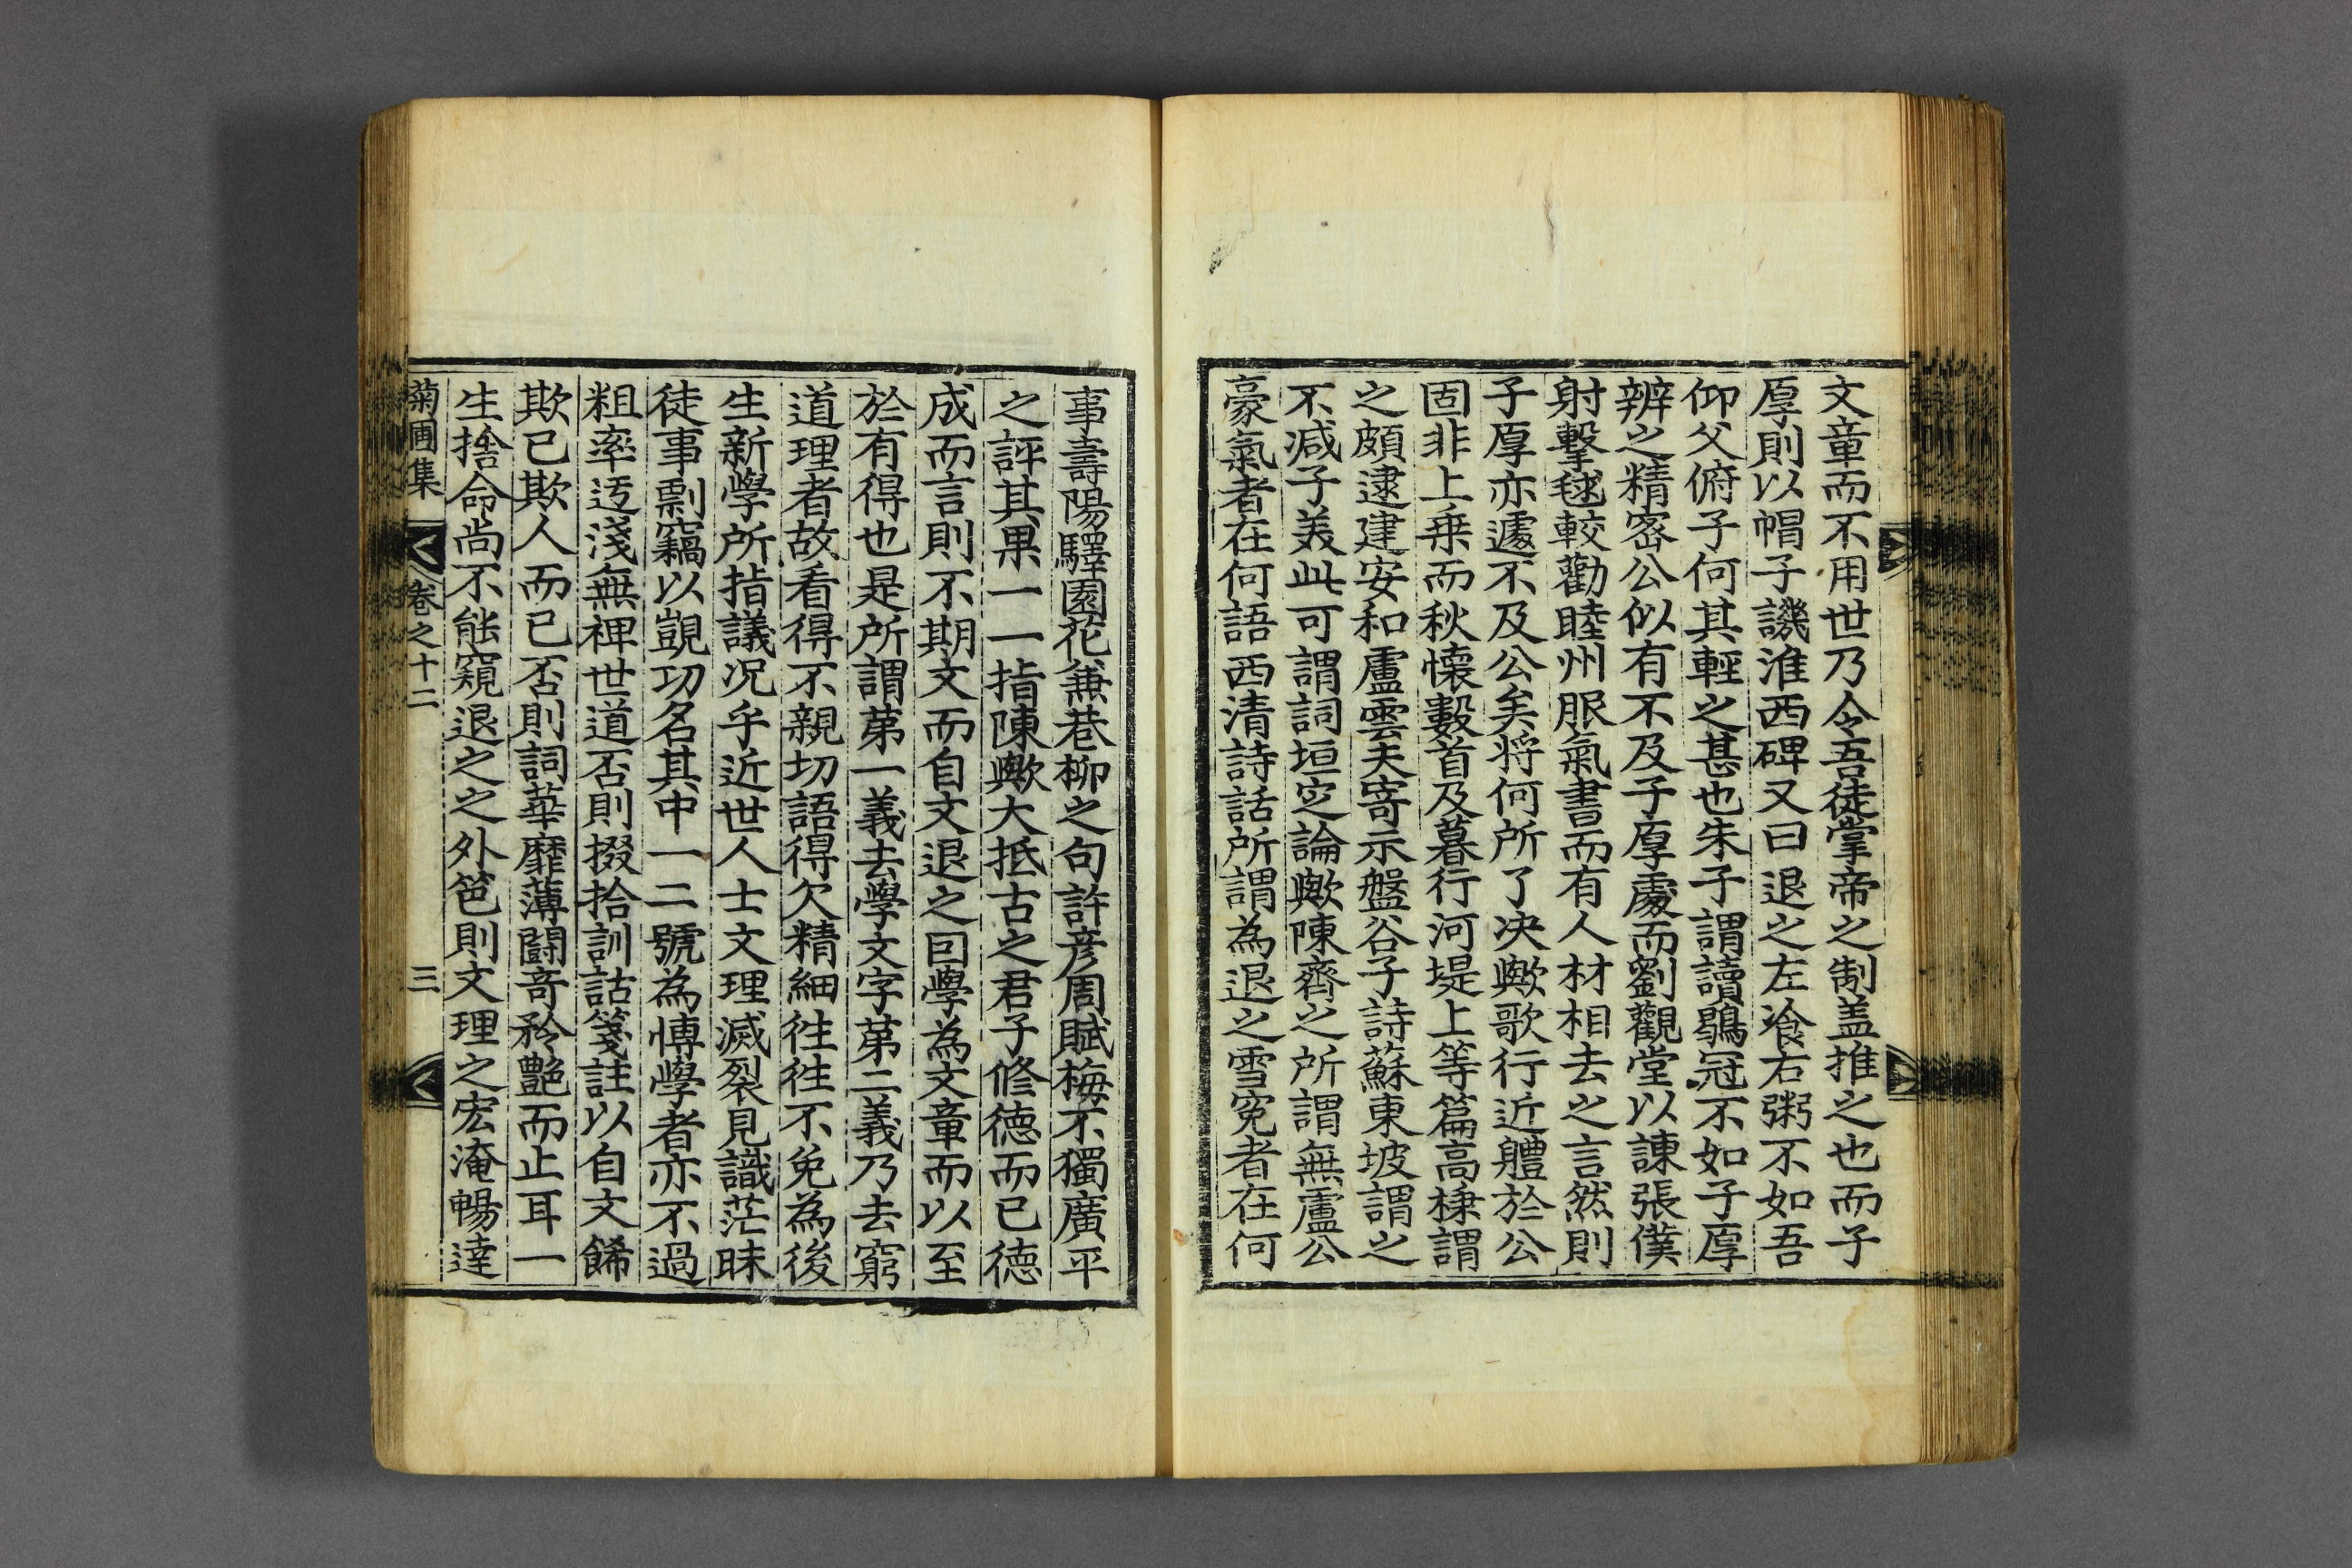 文章而不用世乃令吾徒掌帝之制盖推之也而子
厚則以帽子譏淮西碑又曰退之左飡右粥不如吾
仰父俯子何其輕之甚也朱子謂讀鶡冠不如子厚
辨之精密公似有不及子厚處而劉觀堂以諫張僕
射擊毬較勸睦州服氣書而有人材相去之言然則
子厚亦遽不及公矣将何所了决歟歌行近軆於公
固非上乗而秋懷數首及暮行河堤上等篇高棅謂
之頗逮建安和盧雲夫寄示盤谷子詩蘇東坡謂之
不减子美此可謂詞垣定論歟陳齊之所謂無盧公
豪氣者在何語西清詩話所謂為退之雪寃者在何
事壽陽驛園花兼巷柳之句許彦周賦梅不獨廣平
之評其果一一指陳歟大抵古之君子修德而已德
成而言則不期文而自文退之因學為文章而以至
於有得也是所謂苐一義去學文字苐二義乃去窮
道理者故看得不親切語得欠精細徃徃不免為後
生新學所指議况乎近世人士文理滅裂見識茫昧
徒事剽竊以覬功名其中一二號為博學者亦不過
粗率迃淺無裨世道否則掇拾訓詁箋註以自文餙
欺已欺人而已否則詞華靡薄鬪竒矜艶而止耳一
生捨命尚不能窺退之之外笆則文理之宏淹暢達
菊圃集 卷之十二 三